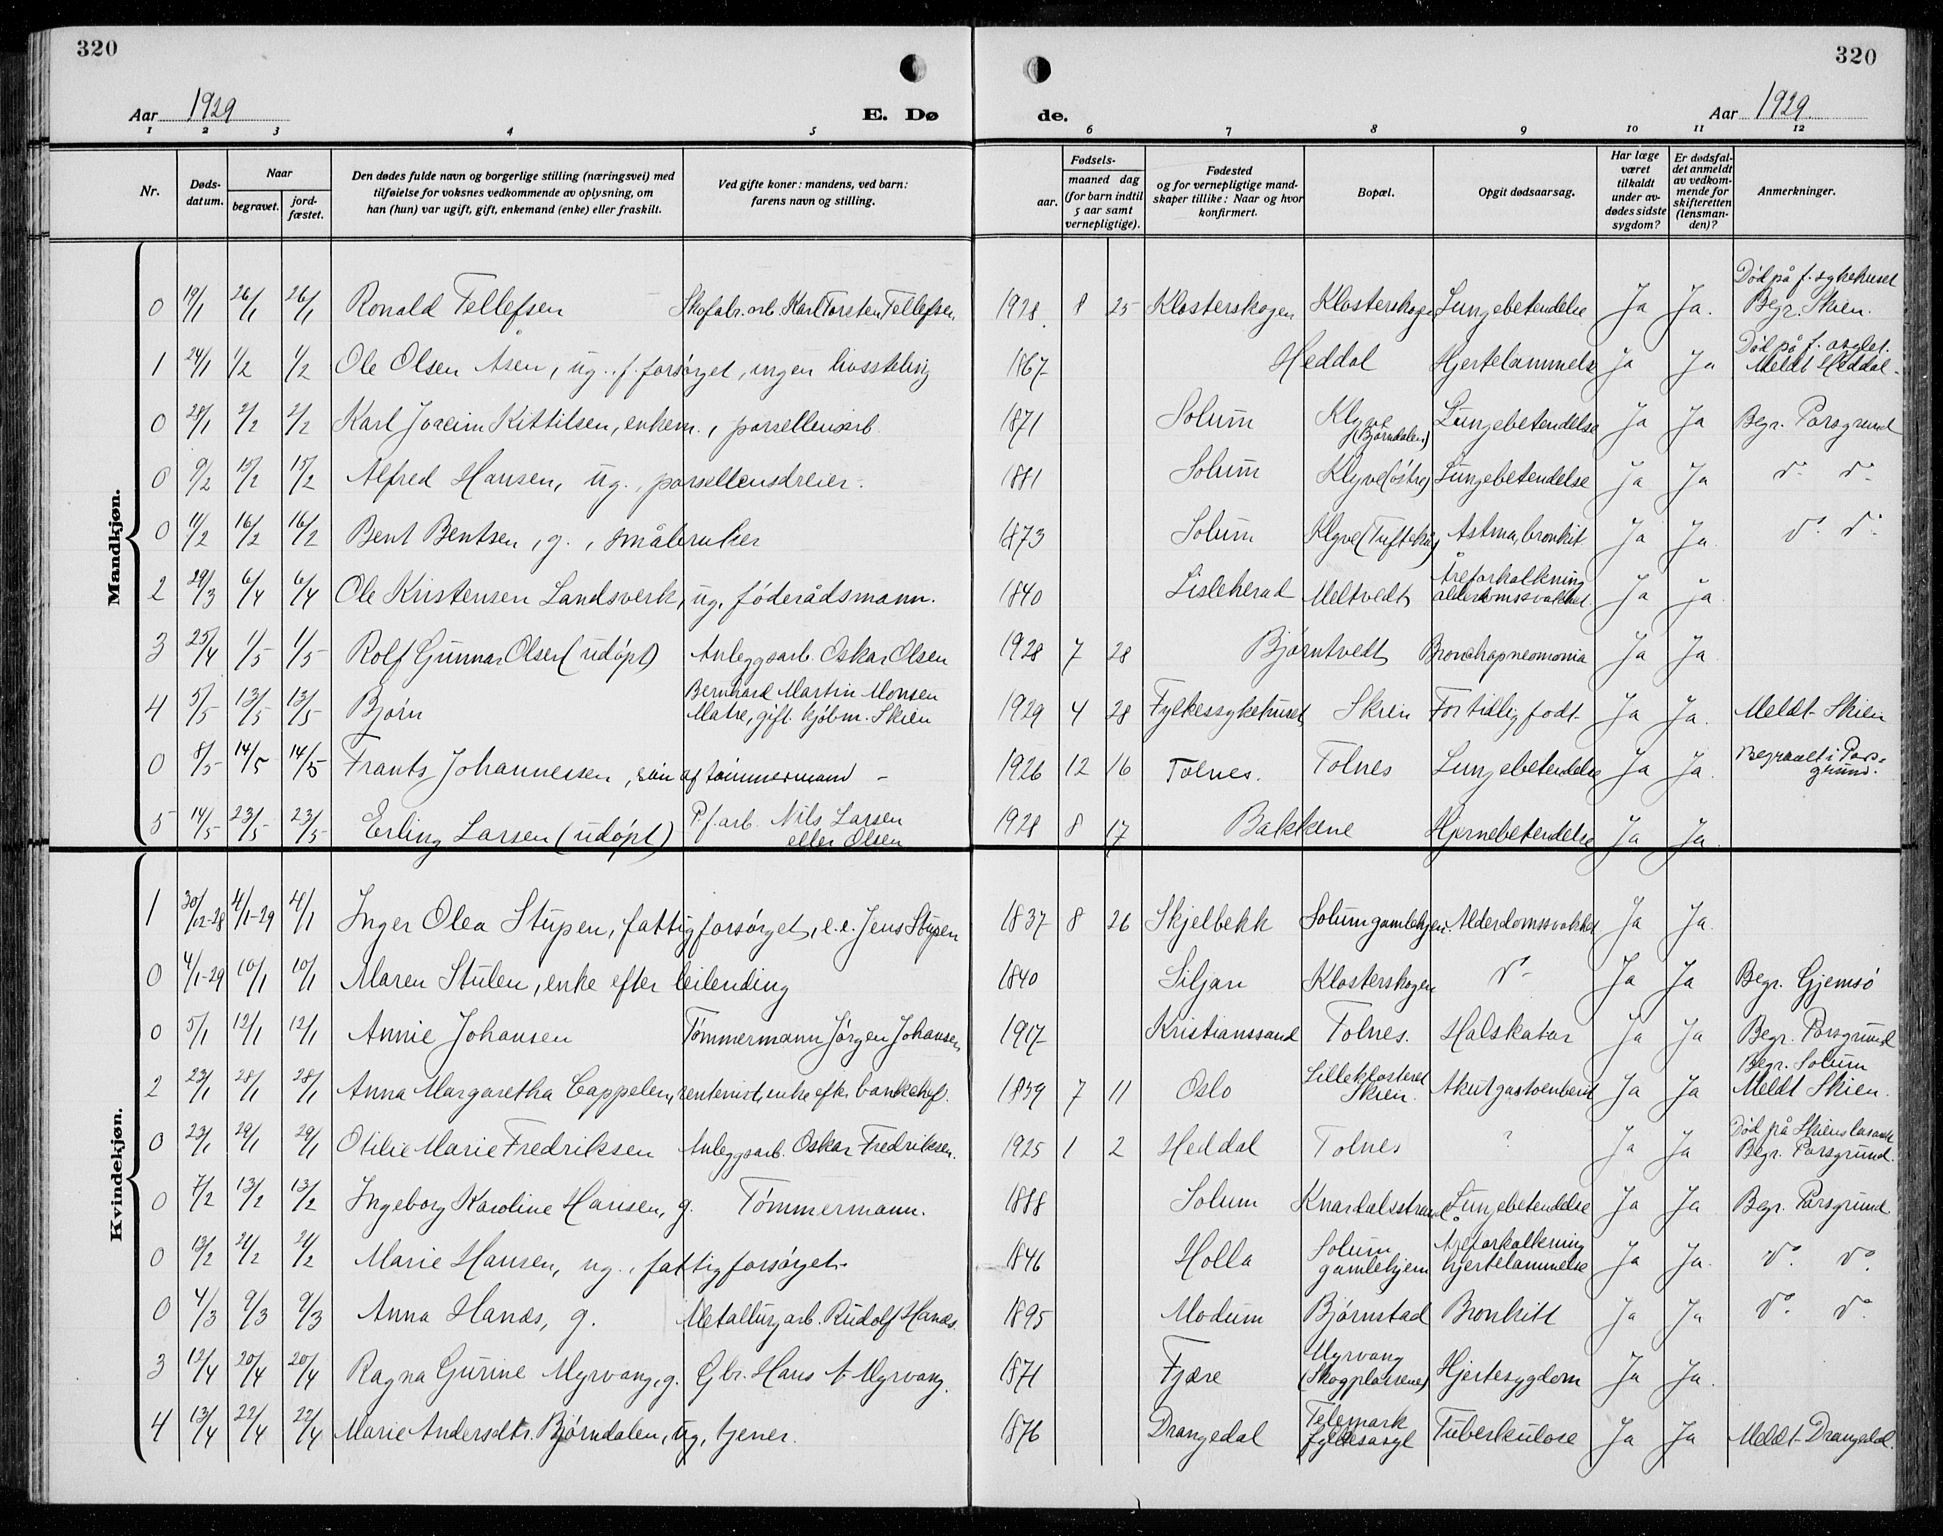 320
320
Aar 1929
E. Dø
de.
Aar 1929
1 2 3 4 5 6 7 8 9 10 11 12
Nr.
Døds-
datum.
Naar
begravet.
jord-
fæstet.
Den dødes fulde navn og borgerlige stilling (næringsvei) med
tilføielse for voksnes vedkommende av oplysning, om
han (hun) var ugift, gift, enkemand (enke) eller fraskilt.
Ved gifte koner: mandens, ved barn:
farens navn og stilling.
Fødsels-
aar.
maaned dag
(for barn indtil
5 aar samt
vernepligtige).
Fødested
og for vernepligtige mand-
skaper tillike: Naar og hvor
konfirmert.
Bopæl.
Opgit dødsaarsag.
Har læge
været
tilkaldt
under av-
dødes sidste
sygdom?
Er dødsfal-
det anmeldt
av vedkom-
mende for
skifteretten
(lensman-
den)?
Anmerkninger.
Mandkjøn.
0 19/1 26/1 26/1 Ronald Tellefsen Skofabr.arb. Karl Torsten Tellefsen 1928 8 25 Klosterskogen Klosterskogen Lungebetendelse Ja Ja. Død på f. sykehuset Begr. Skien.
1 24/1 1/2 1/2 Ole Olsen Åsen, ug., f. forsørget, ingen livsstiling 1867 Heddal Hjertelammelse Ja Ja Død på f. asylet. Meldt Heddal.
0 28/1 2/2 2/2 Karl Joacim Kittilsen, enkem., porsellensarb. 1871 Solum Klyve (Bjørndalen) Lungebetendelse Ja Ja Begr. Porsgrund
0 9/2 15/2 15/2 Alfred Hansen, ug., porsellensdreier. 1881 Solum Klyve (østre) Lungebetendelse Ja Ja do do
0 11/2 16/2 16/2 Bent Bentsen, g., småbruker 1873 Solum Klyve Astma, bronkit Ja Ja do do
2 29/3 6/4 6/4 Ole Kristensen Landsverk, ug. føderådsmann. 1840 Lisleherad Meltvedt Åreforkalkning alderdomssvakhet Ja ja.
3 25/4 1/5 1/5 Rolf Gunnar Olsen (udøpt) Anleggsarb. Oskar Olsen 1928 7 28 Bjørntvedt Bronchopneomonia Ja Ja
4 5/5 13/5 13/5 Bjørn Bernhard Martin Monsen Matre, gift. kjøbm. Skien 1929 4 28 Fylkessykehuset Skien For tidlig født Ja Ja. Meldt Skien
0 8/5 14/5 14/5 Frants Johannessen, søn af tømmermand - 1926 12 16 Tolnes. Tolnes Lungebetendelse Ja Ja. Begravet i Pors-grund.
5 14/5 23/5 23/5 Erling Larsen (udøpt) P.f.arb. Nils Larsen eller Olsen 1928 8 17 Bakkene Hjernebetendelse Ja Ja.
Kvindekjøn.
1 30/12-28 4/1-29 4/1 Inger Olea Stupen, fattigforsørget, e.e. Jens Stupen 1837 8 26 Skjelbekk Solum gamlehjem. Alderdomssvakhet Ja Ja.
0 4/1-29 10/1 10/1 Maren Stulen, enke efter leilending 1840 Siljan Klosterskogen do Ja Ja Begr. Gjemsø
0 5/1 12/1 12/1 Annie Johansen Tømmermann Jørgen Johansen 1917 Kristianssand Tolnes. Halskatar Ja Ja Begr. Porsgrund
2 23/1 28/1 28/1 Anna Margaretha Cappelen, rentenist, enke efter bankchef. 1839 7 11 Oslo Lilleklosteret Skien. Akut gastroenterit Ja Ja Begr. Solum Meldt Skien.
0 23/1 29/1 29/1 Otilie Marie Fredriksen Anleggsarb. Oskar Fredriksen. 1925 1 2 Heddal Tolnes ? Ja Ja Død på Skiens lasarett Begr. Porsgrund.
0 7/2 13/2 13/2 Ingeborg Karoline Hansen, g. Tømmermann. 1888 Solum Knardalsstrand Lungebetendelse Ja Ja Begr. Porsgrund
0 13/2 21/2 21/2 Marie Hansen, ug., fattigforsørget 1846 Holla Solum gamlehjem Åreforkalkning hjertelammelse Ja Ja. do do
0 4/3 9/3 9/3 Anna Hanås, g. Metallurgarb. Rudolf Hanås. 1895 Modum Bjørnstad Bronkitt Ja Ja do do
3 12/4 20/4 20/4 Ragna Gurine Myrvang, g. Gbr. Hans A. Myrvang. 1871 Fjære Myrvang (Skogplassene) Hjertesygdom Ja Ja.
4 13/4 22/4 22/4 Marie Andersdtr. Bjørndalen, ug, tjener. 1876 Drangedal Telemark fylkesasyl Tuberkulose Ja Ja Meldt Drangedal.